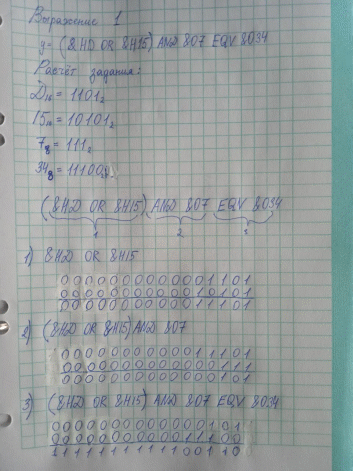 Выражение 1
y= (&HD OR &H15) AND &O7 EQV &O34
Расчёт задания:
D₁₆ = 1101₂
15₁₆ = 10101₂
7₈ = 111₂
34₈ = 11100₂
(&HD OR &H15) AND &O7 EQV &O34
1 2 3
1) &HD OR &H15
0000000000001101
0000000000010101
0000000000011101
2) (&HD OR &H15) AND &O7
0000000000011101
0000000000000111
0000000000000101
3) (&HD OR &H15) AND &O7 EQV &O34
0000000000000101
0000000000011100
1111111111100110